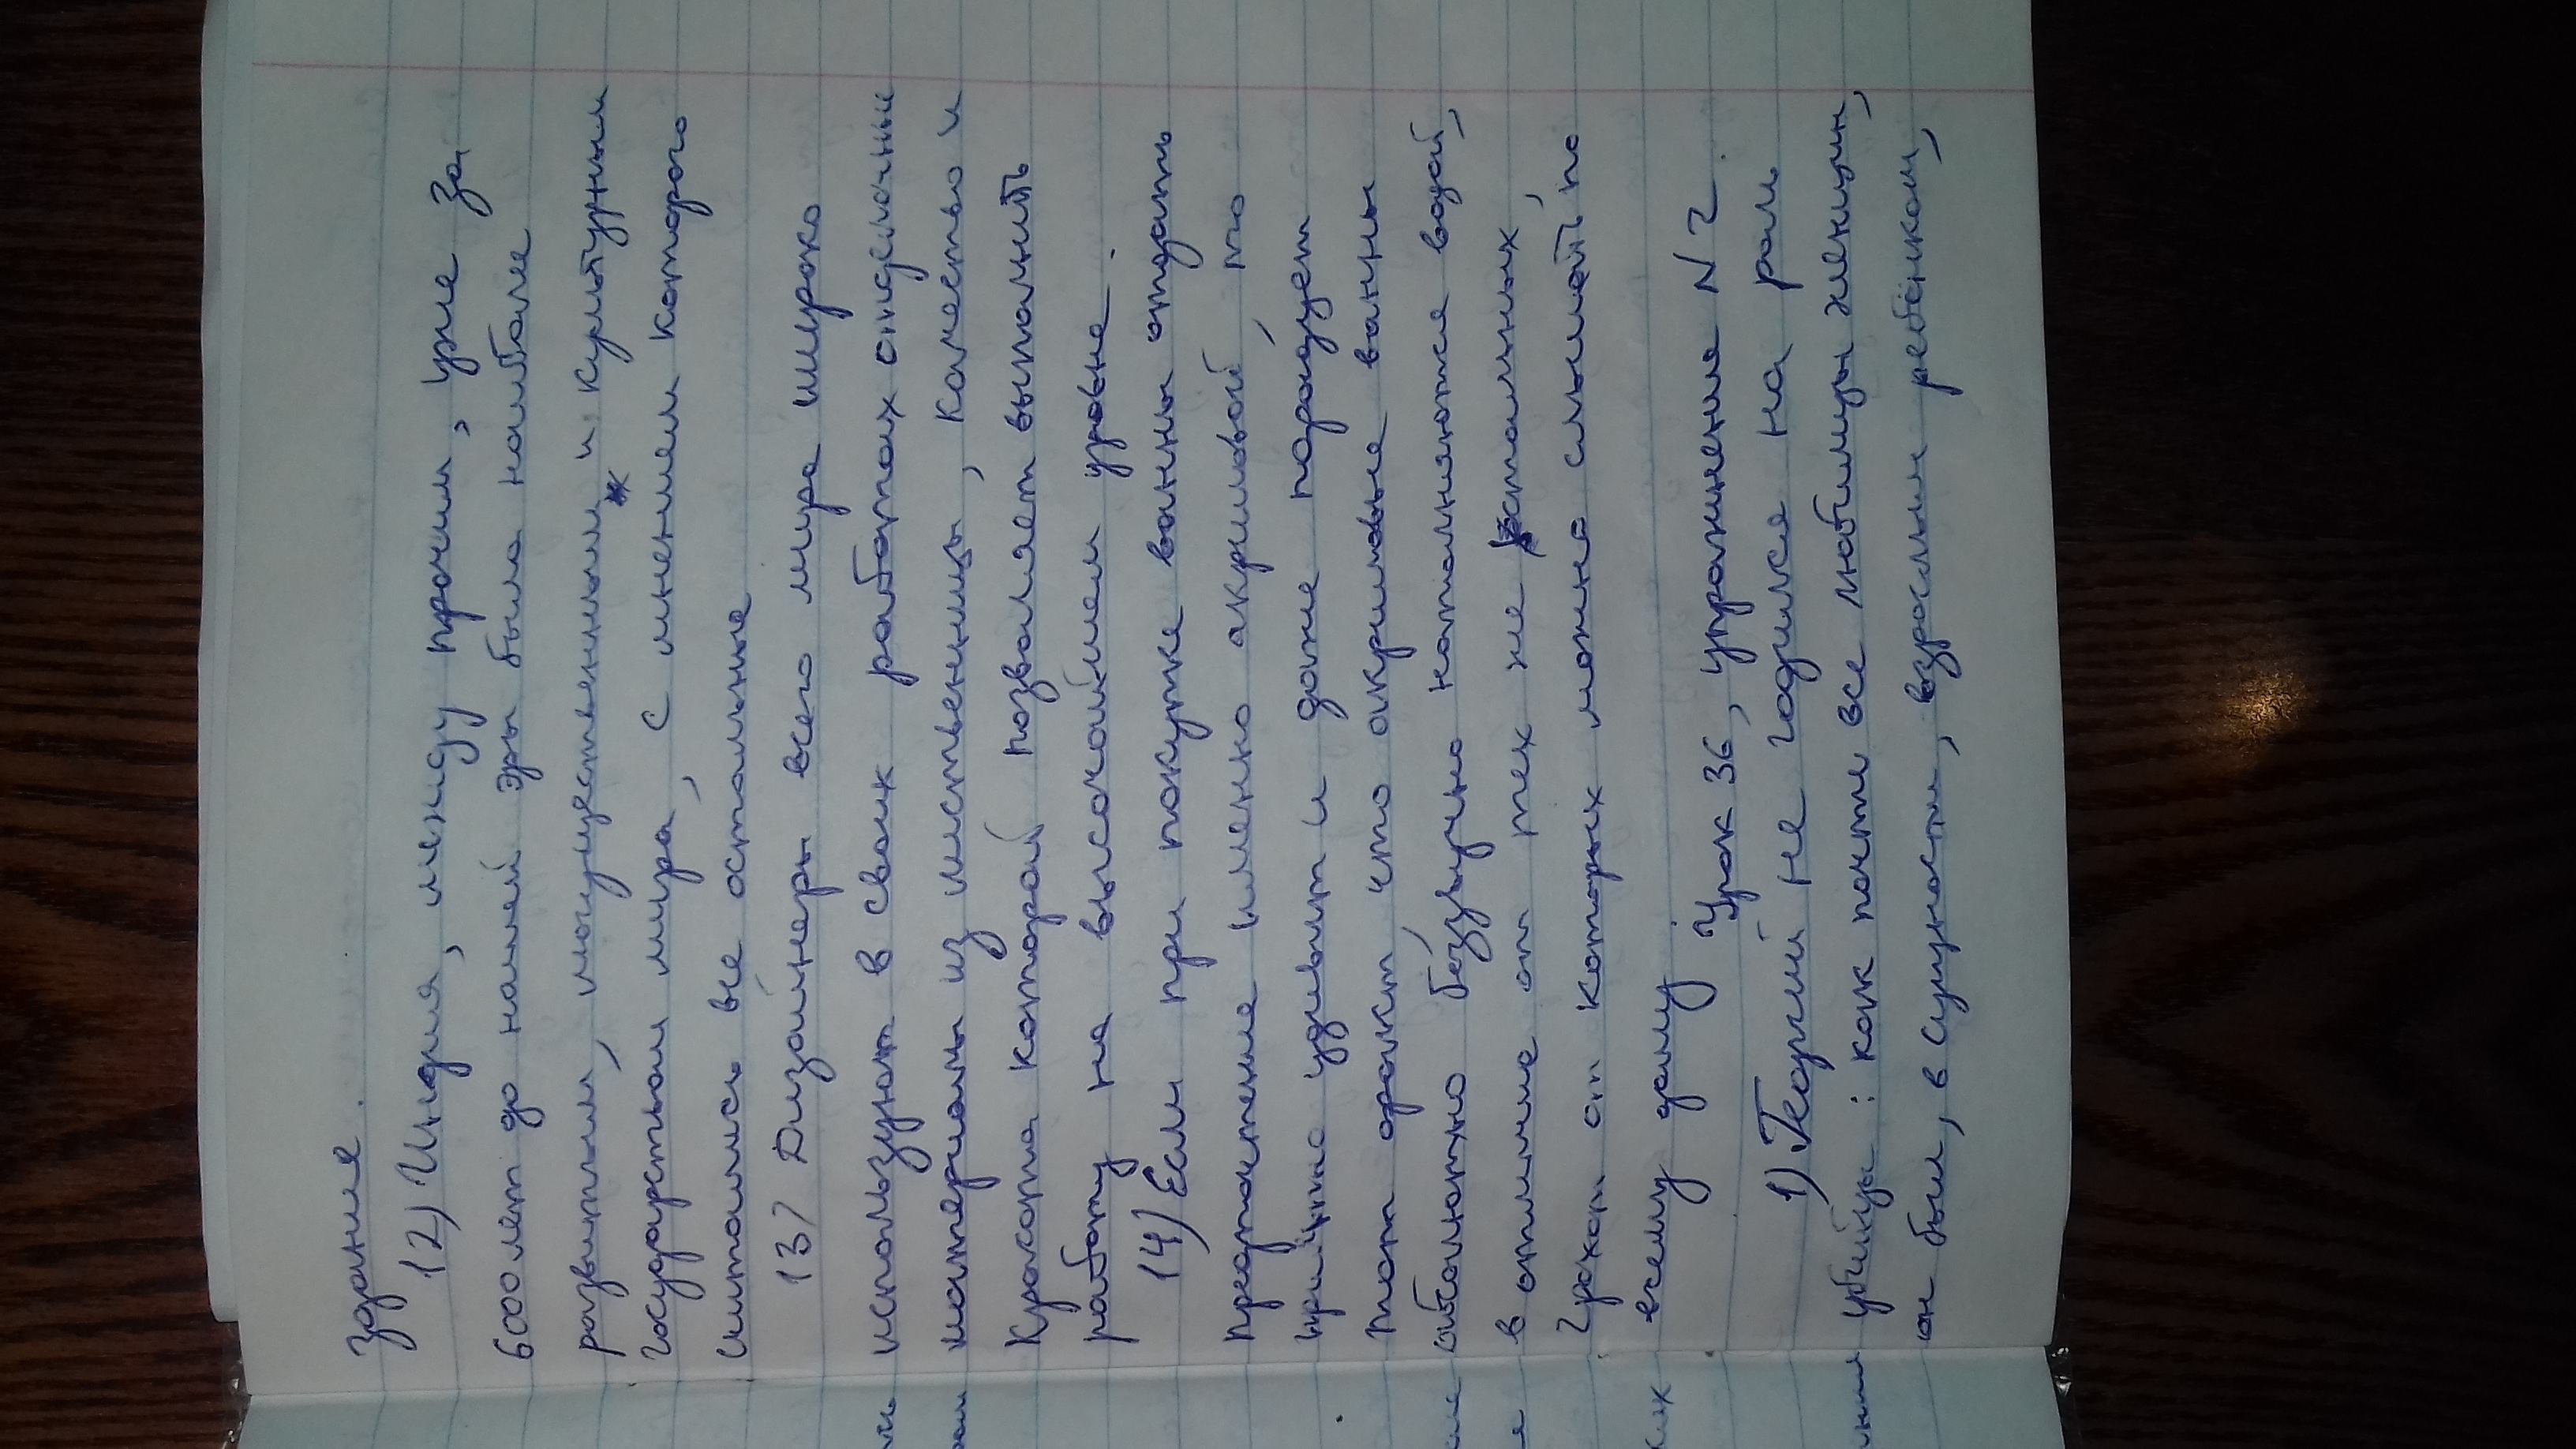 здание.
12) Индия, между прочим, уже за
6000 лет до нашей эры была наиболе
развитым, могущественным и культурным
государством мира, с мнением которого
считались все остальные
13) Дизайнеры всего мира широко
используют в своих работах отделочные
материалы из лиственницы, качество и
Красота которой позволяет выполнить
работу на высочайшем уровне.
14) Если при покупке ванны отдать
предпочтение именно акриловой, то
приятно удивит и даже порадует
тот факт, что акриловые ванны
абсолютно беззвучно наполняются водой,
в отличие от тех же стальных,
грохот от которых можно слышать по
всему дому.
Урок 36, упражнение N 2.
1) Георгий не годился на роль
убийцы: как почти все любимцы женщин,
он был, в сущности, взрослым ребёнком,